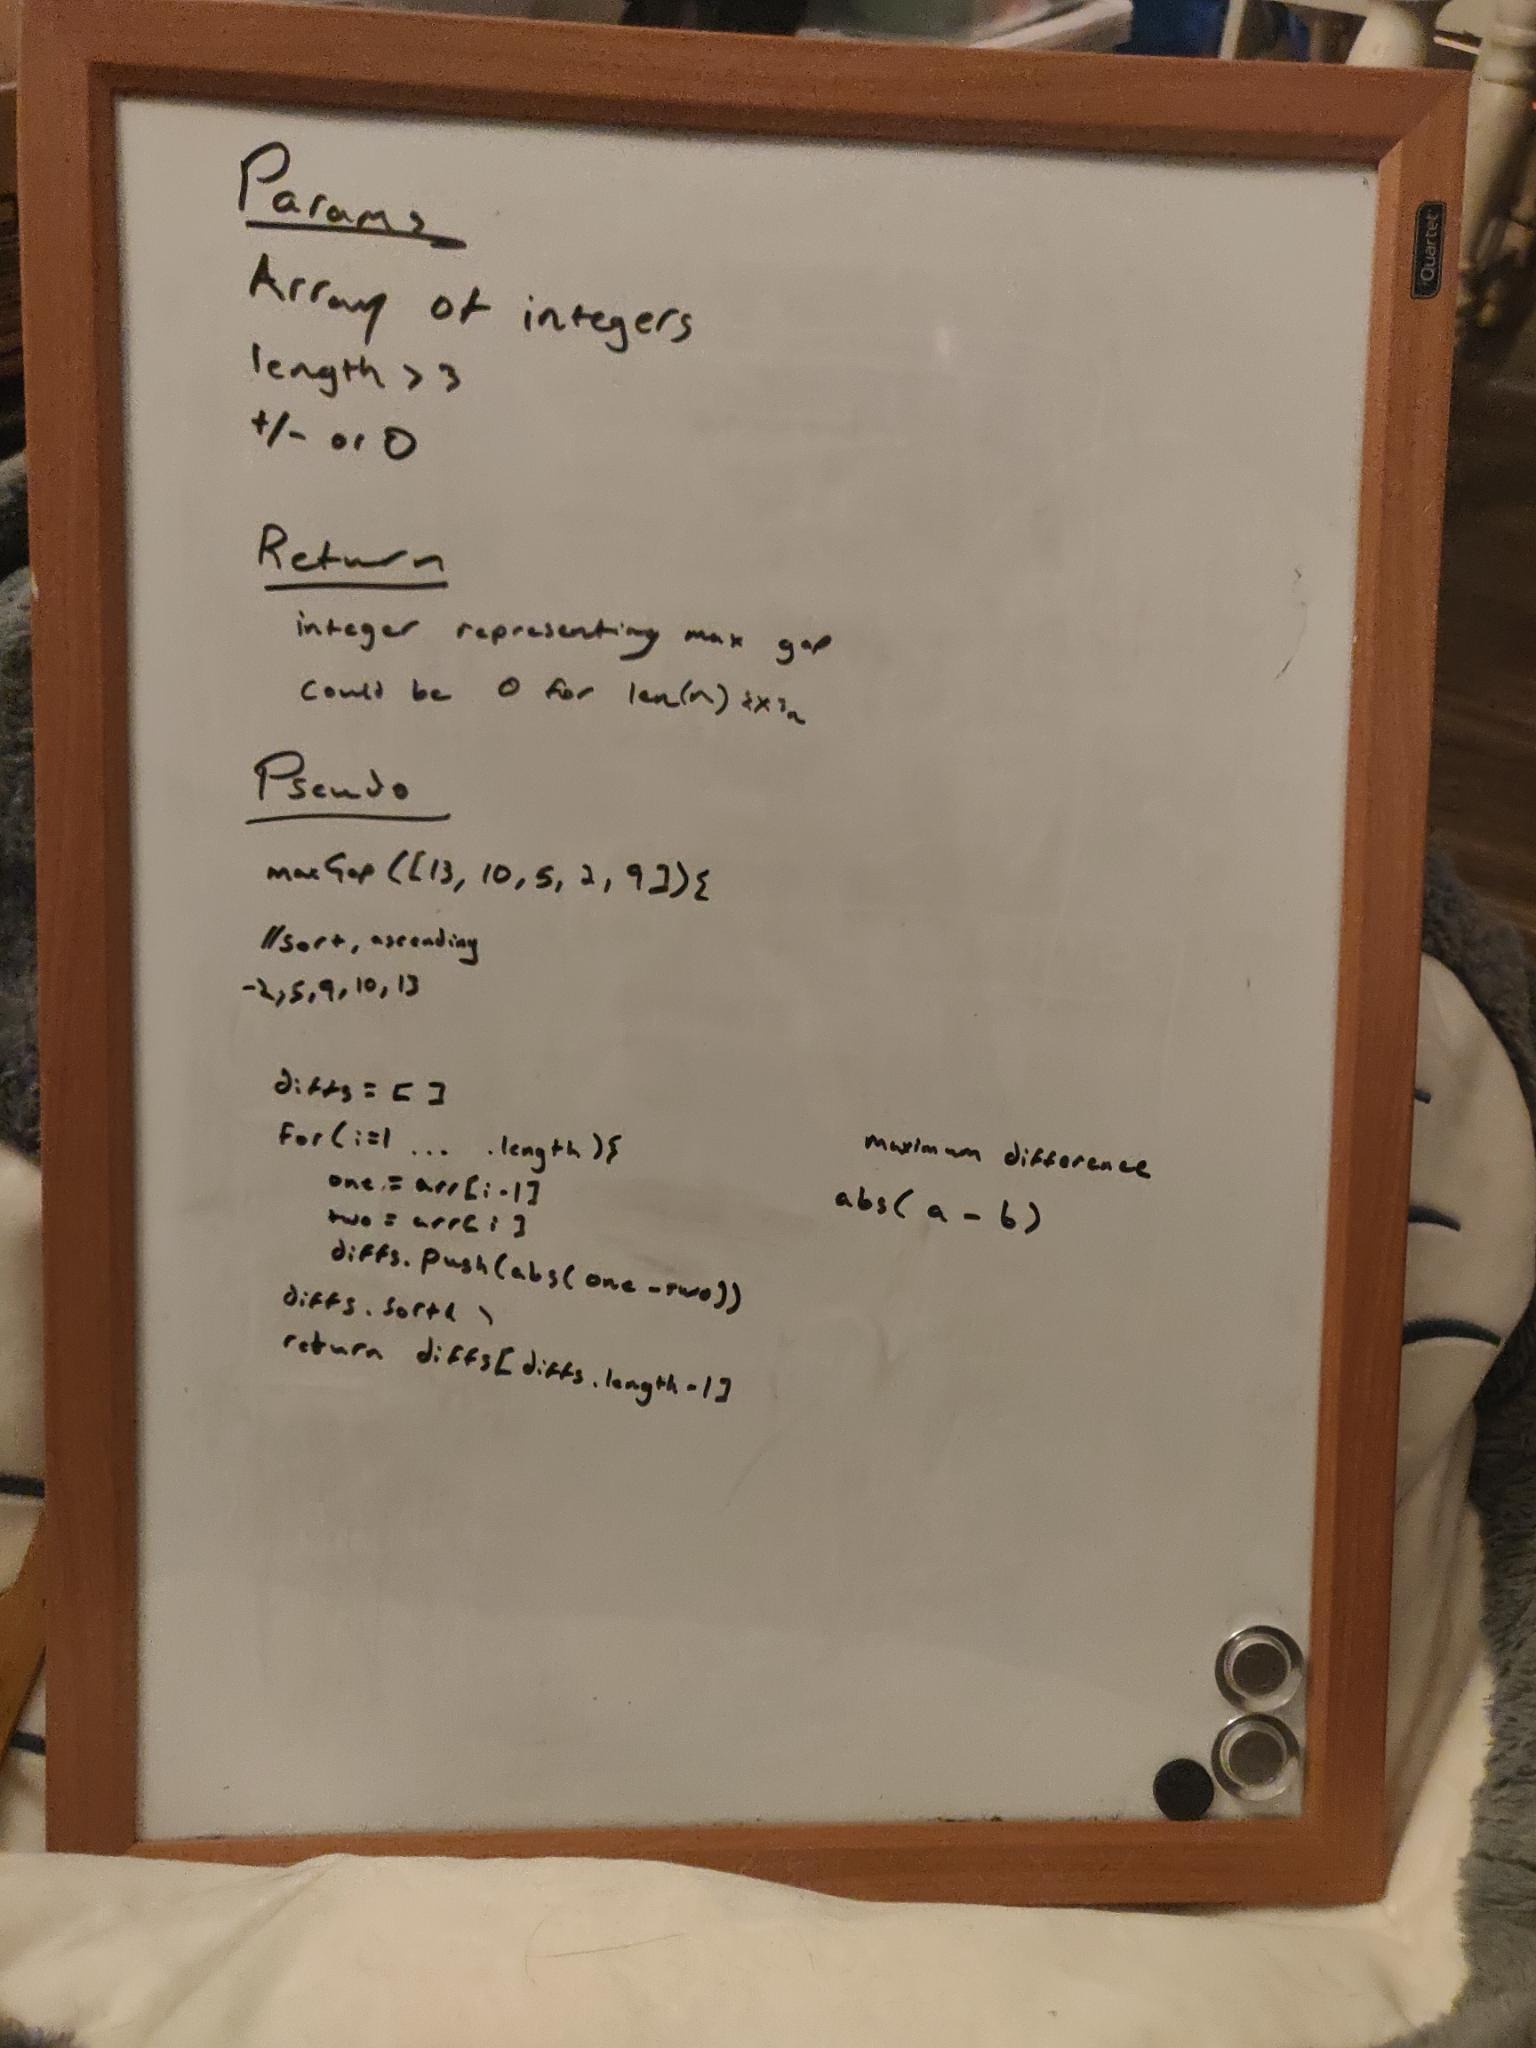 Params
Array of integers
length > 3
+/- or 0
Return
integer representing max gap
could be 0 for len(n)
Pseudo
maxGap([13, 10, 5, 2, 9]){
//sort, ascending
-2, 5, 9, 10, 13
diffs = [ ]
for(i=1 ... .length){
one = arr[i-1]
two = arr[i]
diffs.push(abs(one-two))
diffs.sort( )
return diffs[diffs.length-1]
maximum difference
abs( a - b )
Quartet